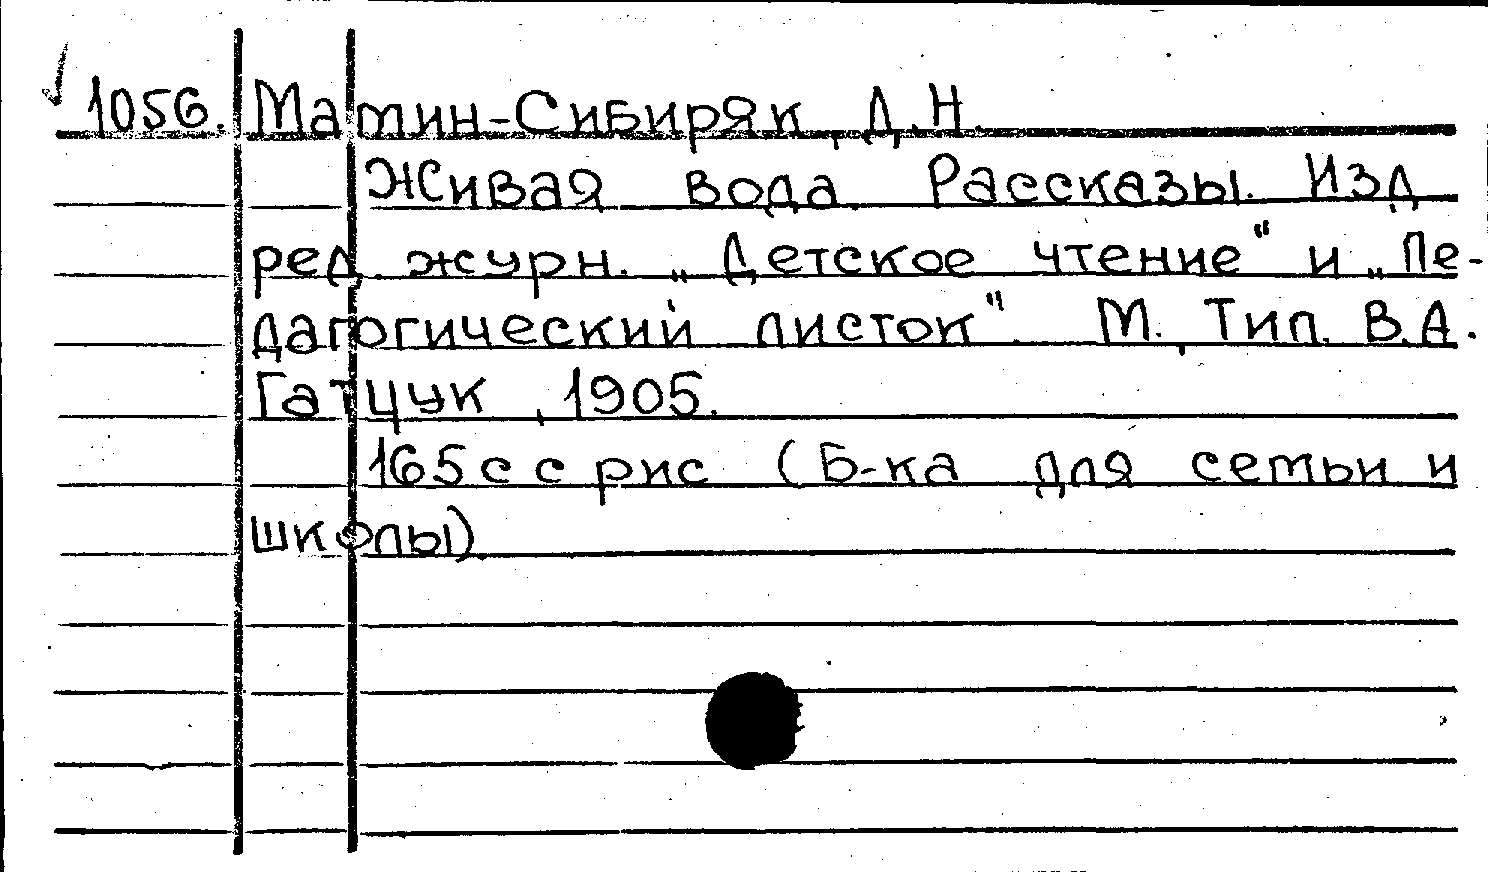 1056. Мамин-Сибиряк, Д.Н.
Живая вода. Рассказы. Изд
ред. журн. „Детское чтение" и „Пе-
дагогический листок". М., Тип. В.А.
Гатцук, 1905.
165 с с рис (Б-ка для семьи и
школы)